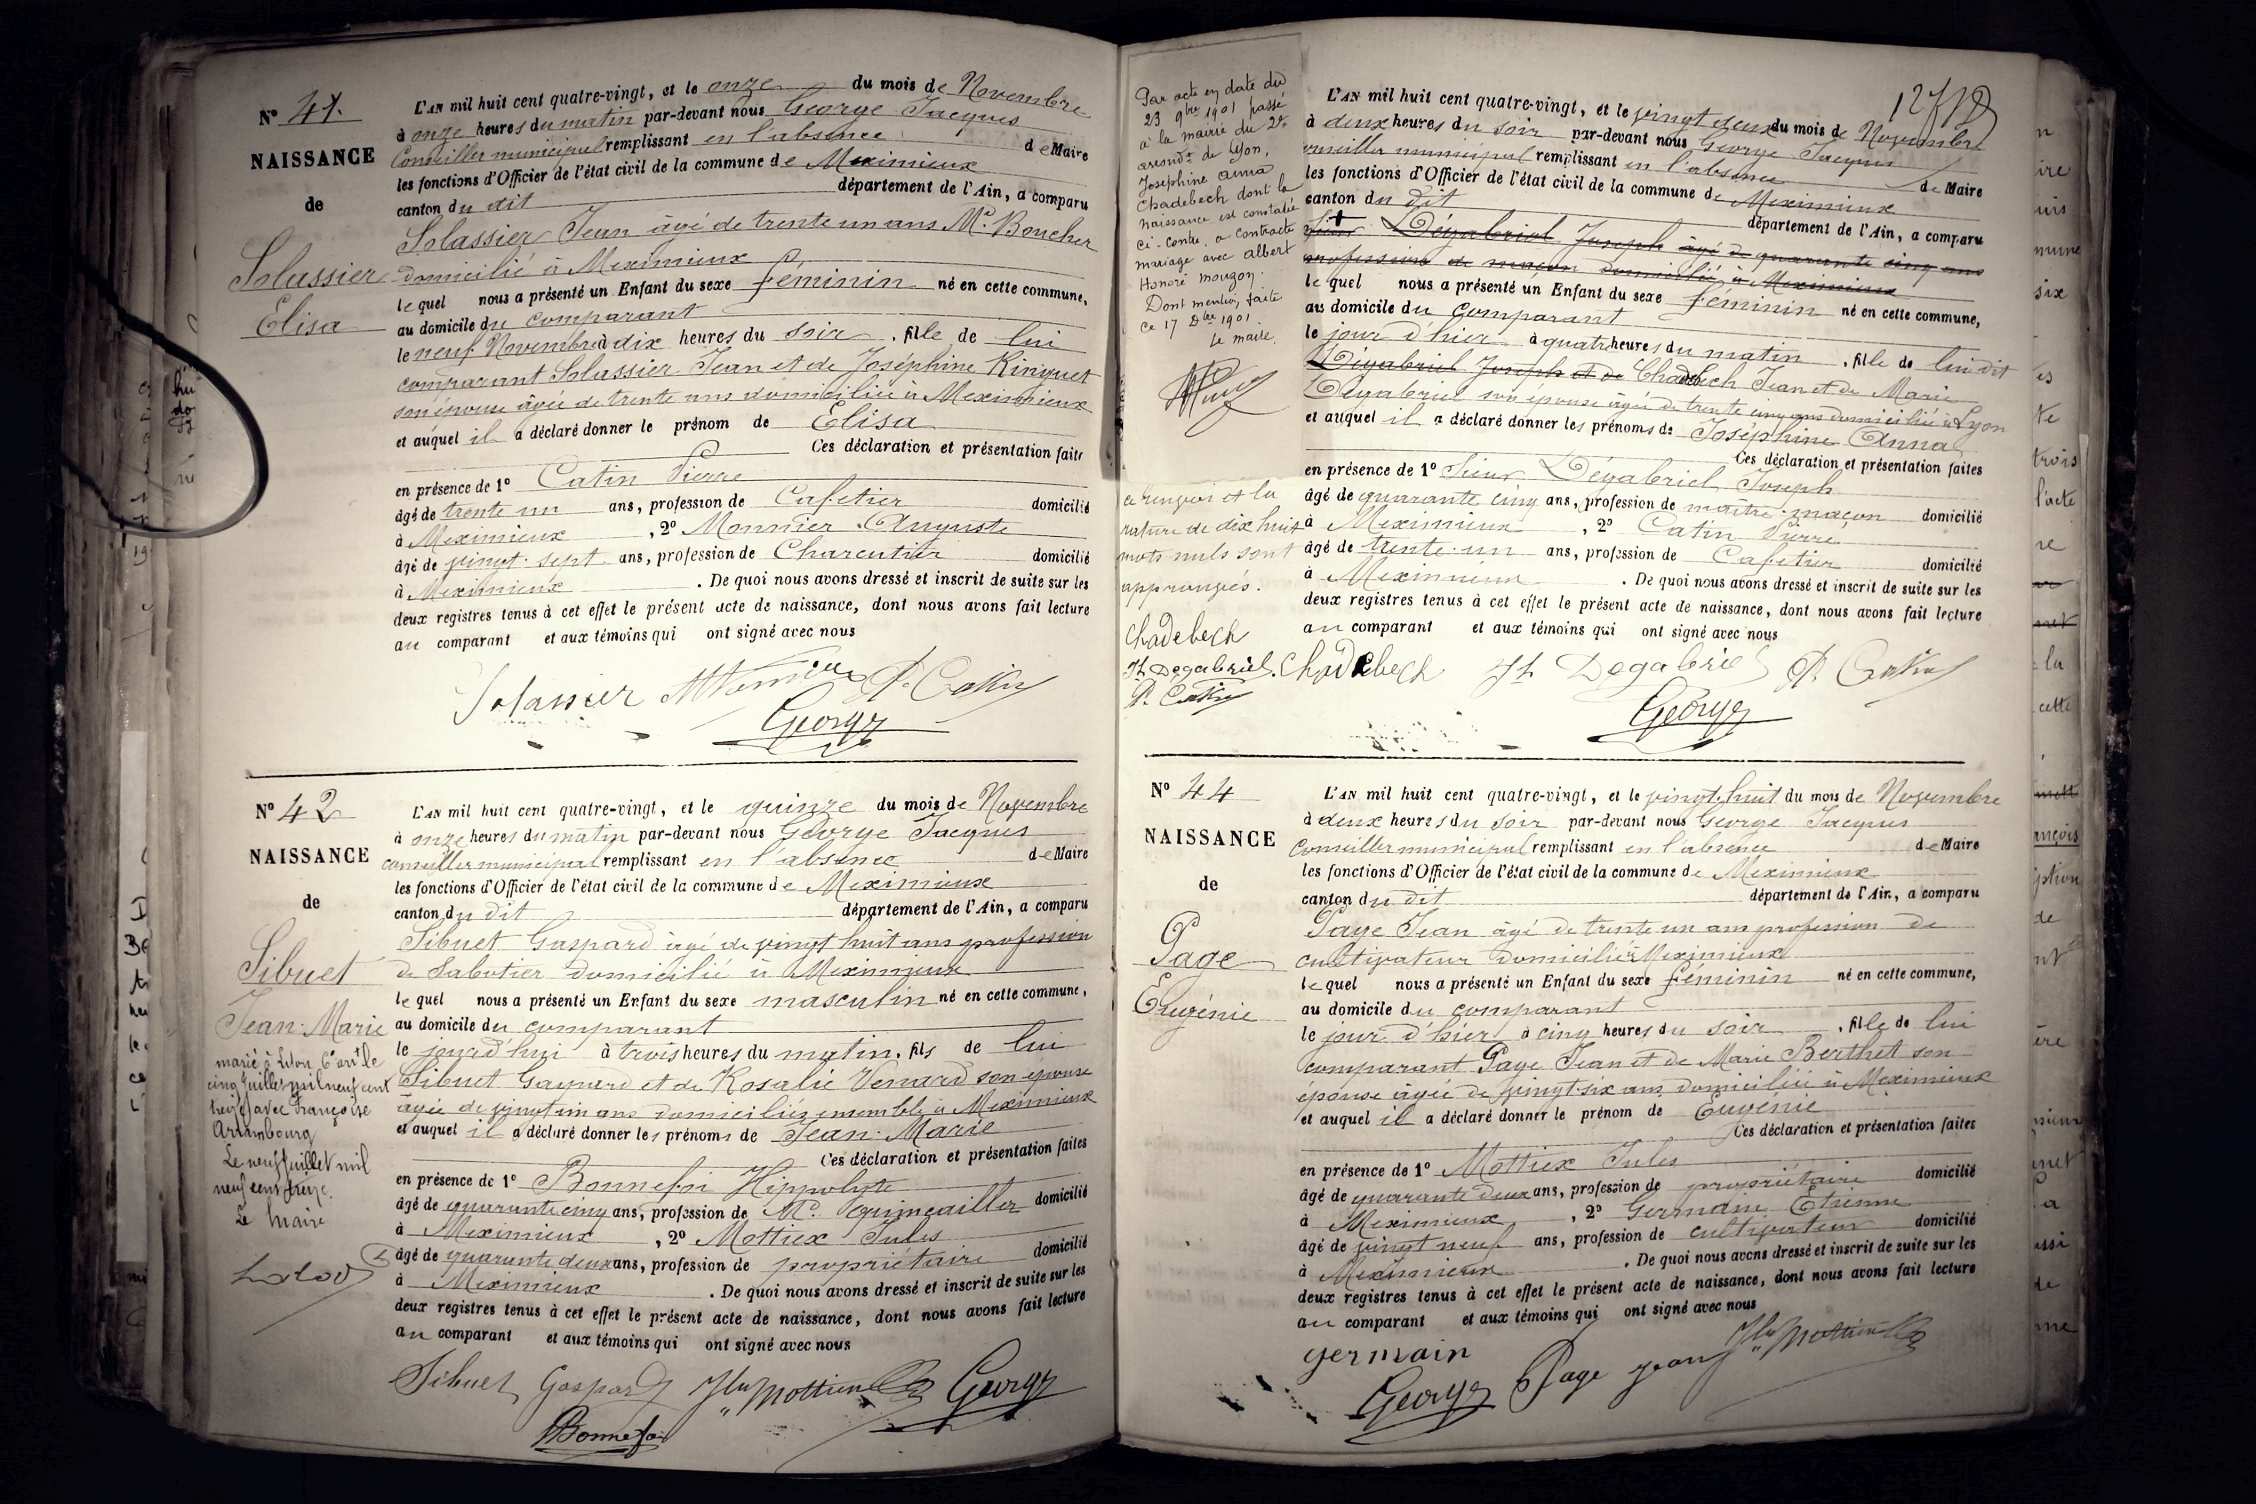 N° 41.
NAISSANCE
de
Solassier
Elisa
L'AN mil huit cent quatre-vingt, et le onze du mois de Novembre
à onze heures du matin par-devant nous George Jacques
Conseiller municipal remplissant en l'absence de Maire
les fonctions d'Officier de l'état civil de la commune de Meximieux
canton du dit département de l'Ain, a comparu
Solassier Jean âgé de trente un ans Md. Boucher
domicilié à Meximieux
lequel nous a présenté un Enfant du sexe féminin né en cette commune,
au domicile du comparant
le neuf Novembre à dix heures du soir, fille de lui
comparant Solassier Jean et de Joséphine Ringuet
son épouse âgée de trente ans domiciliée à Meximieux
et auquel il a déclaré donner le prénom de Elisa
Ces déclaration et présentation faites
en présence de 1° Catin Pierre
âgé de trente un ans, profession de Cafetier domicilié
à Meximieux, 2° Monnier Auguste
âgé de vingt-sept ans, profession de Charcutier domicilié
à Meximieux. De quoi nous avons dressé et inscrit de suite sur les
deux registres tenus à cet effet le présent acte de naissance, dont nous avons fait lecture
au comparant et aux témoins qui ont signé avec nous
Solassier AMonnier P. Catin
George
N° 42
NAISSANCE
de
Sibuet
Jean-Marie
marié à Lyon 6e arrt le
cinq juillet mil neuf cent
treize avec Françoise
Arrambourg
Le neuf juillet mil
neuf cent treize.
Le Maire
L'AN mil huit cent quatre-vingt, et le quinze du mois de Novembre
à onze heures du matin par-devant nous George Jacques
Conseiller municipal remplissant en l'absence de Maire
les fonctions d'Officier de l'état civil de la commune de Meximieux
canton du dit département de l'Ain, a comparu
Sibuet Gaspard âgé de vingt huit ans profession
de Sabotier domicilié à Meximieux
lequel nous a présenté un Enfant du sexe masculin né en cette commune,
au domicile du comparant
le jourd'hui à trois heures du matin, fils de lui
Sibuet Gaspard et de Rosalie Venard son épouse
âgée de vingt un ans domiciliés ensemble à Meximieux
et auquel il a déclaré donner les prénoms de Jean-Marie
Ces déclaration et présentation faites
en présence de 1° Bonnefoi Hippolyte
âgé de quarante cinq ans, profession de Md. quincailler domicilié
à Meximieux, 2° Mottiex Jules
âgé de quarante deux ans, profession de propriétaire domicilié
à Meximieux. De quoi nous avons dressé et inscrit de suite sur les
deux registres tenus à cet effet le présent acte de naissance, dont nous avons fait lecture
au comparant et aux témoins qui ont signé avec nous
Sibuet Gaspard George
Bonnefoi
Par acte en date du
23 9bre 1901 passé
à la mairie du 2e
arrondt de Lyon,
Joséphine Anna
Chadebech dont la
naissance est constatée
ci-contre, a contracté
mariage avec Albert
Honoré Mouzon.
Dont mention faite
ce 17 Xbre 1901
Le maire,
L'AN mil huit cent quatre-vingt, et le vingt deux du mois de Novembre
à deux heures du soir par-devant nous George Jacques
Conseiller municipal remplissant en l'absence de Maire
les fonctions d'Officier de l'état civil de la commune de Meximieux
canton du dit département de l'Ain, a comparu
Sieur Dégabriel Joseph âgé de quarante cinq ans
profession de maçon domicilié à Meximieux
lequel nous a présenté un Enfant du sexe féminin né en cette commune,
au domicile du comparant
le jour d'hier à quatre heures du matin, fille de lui dit
Dégabriel Joseph et de Chadebech Jean et de Marie
Dégabriel son épouse âgée de trente cinq ans domiciliée à Lyon
et auquel il a déclaré donner les prénoms de Joséphine Anna
Ces déclaration et présentation faites
en présence de 1° Sieur Dégabriel Joseph
âgé de quarante cinq ans, profession de maître-maçon domicilié
à Meximieux, 2° Catin Pierre
âgé de trente-un ans, profession de Cafetier domicilié
à Meximieux. De quoi nous avons dressé et inscrit de suite sur les
deux registres tenus à cet effet le présent acte de naissance, dont nous avons fait lecture
au comparant et aux témoins qui ont signé avec nous
ce renvoi et la
rature de dix huit
mots nuls sont
approuvés.
Chadebech
Jh Degabriel.
P. Catin
Chadebech Jh Degabriel P. Catin
George
N° 44
NAISSANCE
de
Page
Eugénie
L'AN mil huit cent quatre-vingt, et le vingt-huit du mois de Novembre
à deux heures du soir par-devant nous George Jacques
Conseiller municipal remplissant en l'absence de Maire
les fonctions d'Officier de l'état civil de la commune de Meximieux
canton du dit département de l'Ain, a comparu
Page Jean âgé de trente un ans profession de
cultivateur domicilié à Meximieux
lequel nous a présenté un Enfant du sexe féminin né en cette commune,
au domicile du comparant
le jour d'hier à cinq heures du soir, fille de lui
comparant Page Jean et de Marie Berthet son
épouse âgée de vingt-six ans domiciliée à Meximieux
et auquel il a déclaré donner le prénom de Eugénie
Ces déclaration et présentation faites
en présence de 1° Mottiex Jules
âgé de quarante deux ans, profession de propriétaire domicilié
à Meximieux, 2° Germain Etienne
âgé de vingt neuf ans, profession de cultivateur domicilié
à Meximieux. De quoi nous avons dressé et inscrit de suite sur les
deux registres tenus à cet effet le présent acte de naissance, dont nous avons fait lecture
au comparant et aux témoins qui ont signé avec nous
germain
George Page jean